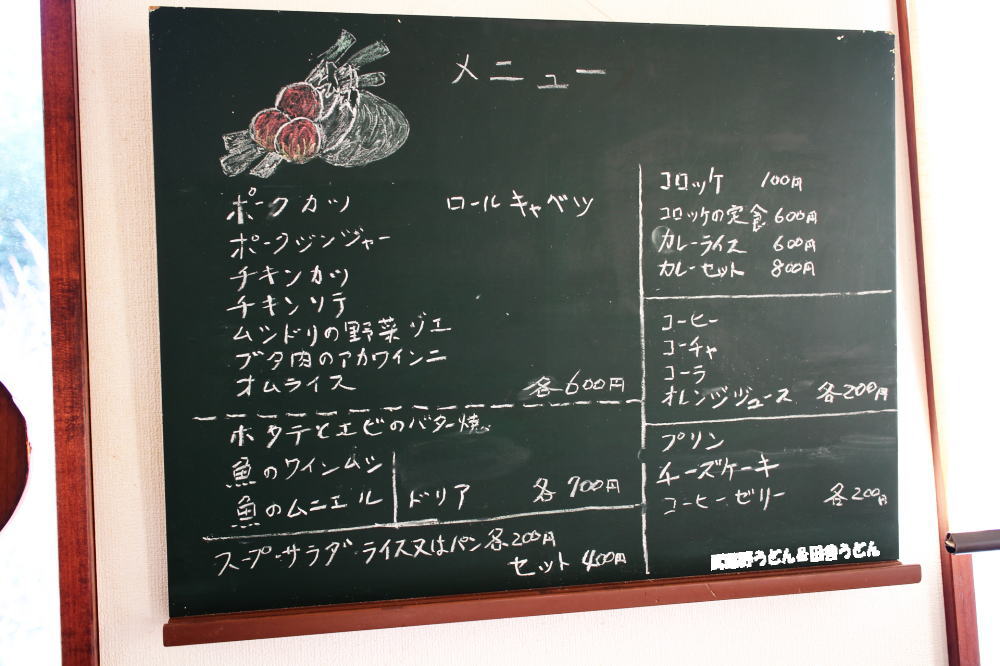 メニュー
ポークカツ ロールキャベツ
ポークジンジャー
チキンカツ
チキンソテ
ムシドリの野菜ゾエ
ブタ肉のアカワインニ
オムライス 各600円
ホタテとエビのバター焼
魚のワインムシ
魚のムニエル
ドリア 各700円
スープ・サラダ・ライス又はパン各200円
セット 400円
コロッケ 100円
コロッケの定食 600円
カレーライス 600円
カレーセット 800円
コーヒー
コーチャ
コーラ
オレンジジュース 各200円
プリン
チーズケーキ
コーヒーゼリー 各200円
武蔵野うどん&田舎うどん